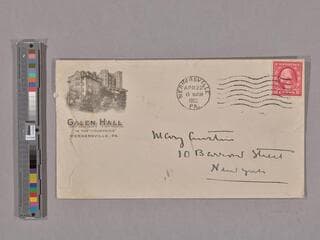 GALEN HALL
IN THE MOUNTAINS
WERNERSVILLE, PA.
WERNERSVILLE
APR 22
PA.
Mary Austin
10 Barrow Street
New York